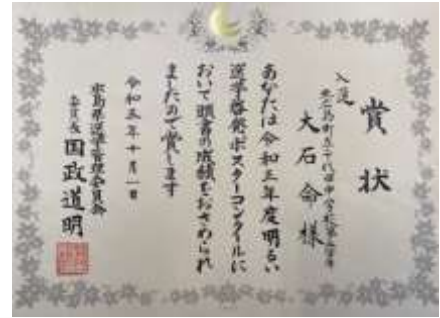 賞状
入選
大石命様
あなたは令和三年度明るい
選挙啓発ポスターコンクールに
おいて頭書の成績をおさめられ
ましたので賞します
令和三年十月一日
広島県選挙管理委員会
委員長 国政道明